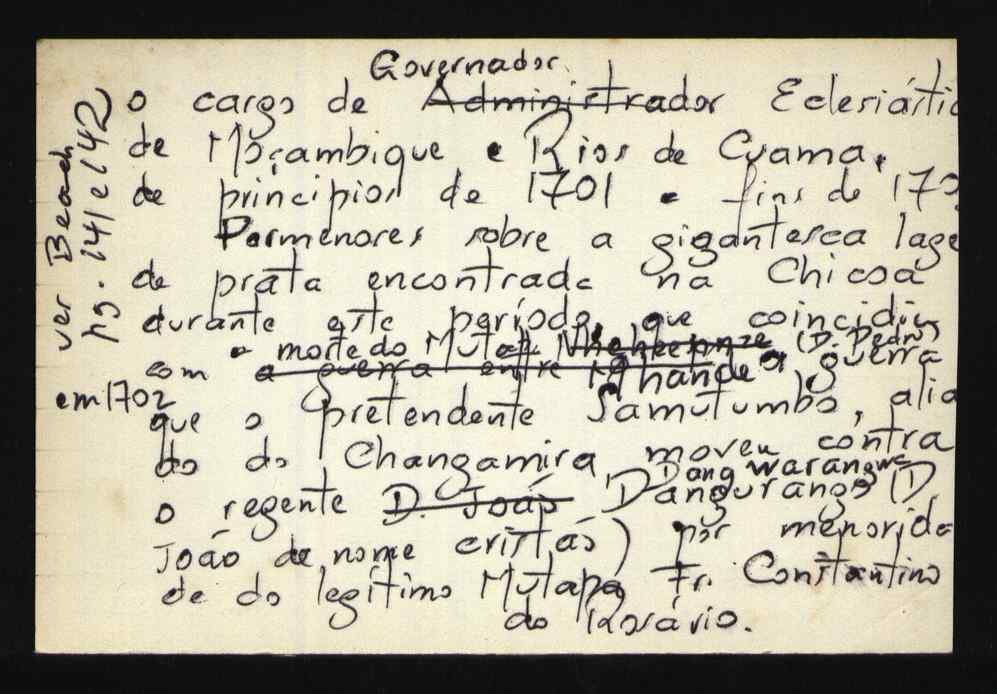 Governador
o cargo de Administrador Eclesiástic
de Moçambique e Rios de Cuama,
de principios de 1701 a fins de 170
Pormenores sobre a gigantesca lage
de prata encontrada na Chicoa
durante este período, que coincidiu
a morte do Mutapa (D. Pedro)
com a guerra entre Mhande a guerra
em 1702
que o pretendente Samutumbo, alia
do do Changamira, moveu contra
Dangwarangwe
o regente D. João Dangurango (D.
João de nome cristão) por menorida
de do legítimo Mutapa, Fr. Constantino
do Rosário.
ver Beach
pg. 141 e 142